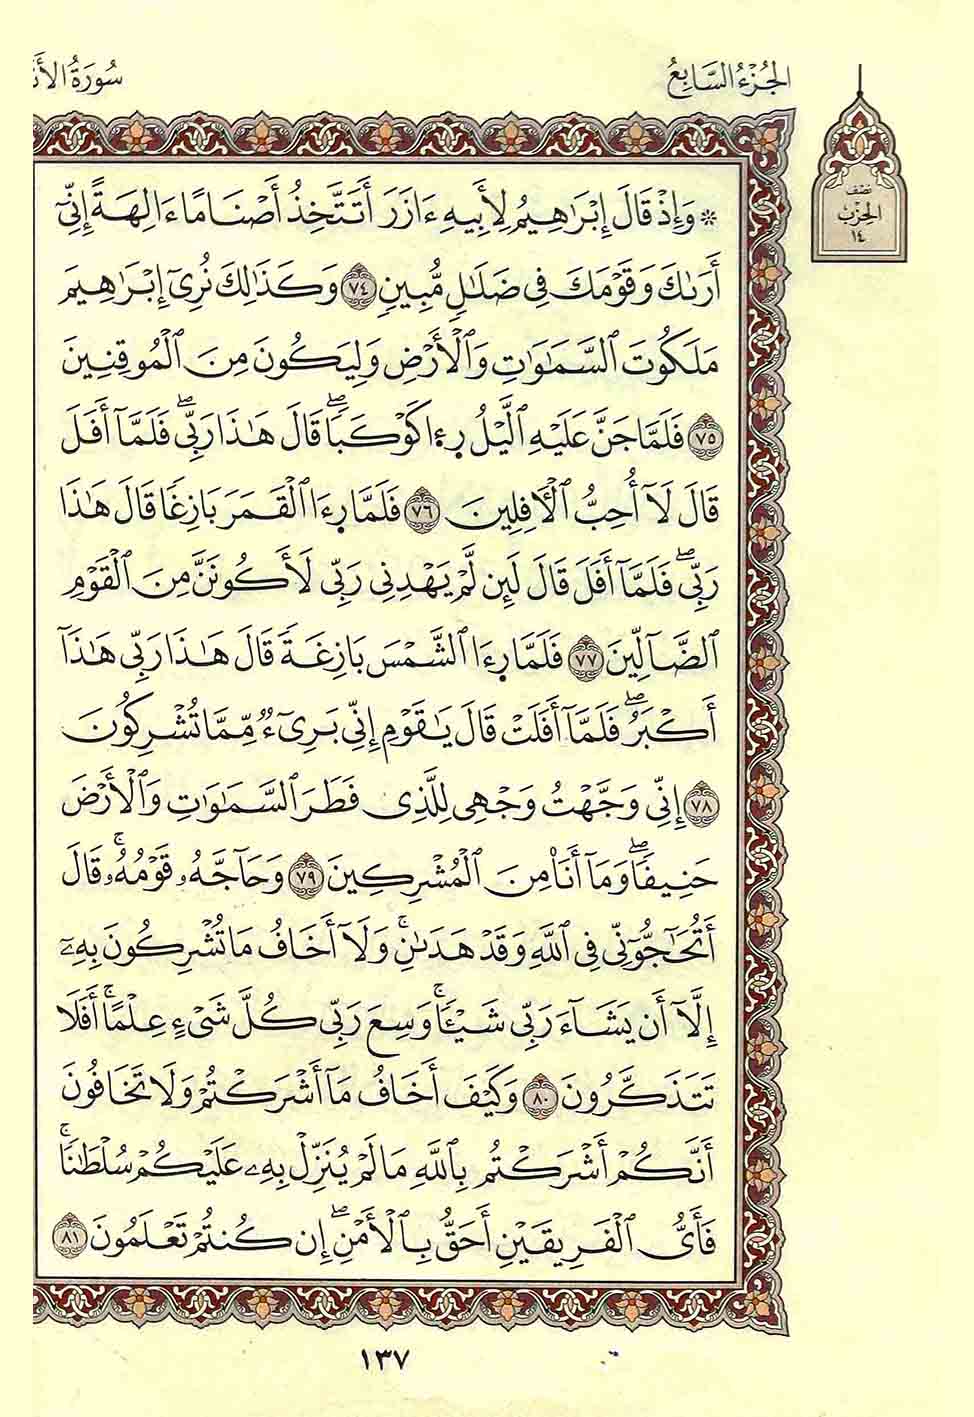 الجُزْءُ السَّابِعُ
سُورَةُ الأَنْ
نصف
الحِزْب
١٤
۞ وَإِذْ قَالَ إِبْرَٰهِيمُ لِأَبِيهِ ءَازَرَ أَتَتَّخِذُ أَصْنَامًا ءَالِهَةً إِنِّيٓ
أَرَىٰكَ وَقَوْمَكَ فِي ضَلَٰلٍ مُّبِينٍ ٧٤ وَكَذَٰلِكَ نُرِيٓ إِبْرَٰهِيمَ
مَلَكُوتَ ٱلسَّمَٰوَٰتِ وَٱلْأَرْضِ وَلِيَكُونَ مِنَ ٱلْمُوقِنِينَ
٧٥ فَلَمَّا جَنَّ عَلَيْهِ ٱلَّيْلُ رِءَا كَوْكَبًاۖ قَالَ هَٰذَا رَبِّيۖ فَلَمَّآ أَفَلَ
قَالَ لَآ أُحِبُّ ٱلْأٓفِلِينَ ٧٦ فَلَمَّا رِءَا ٱلْقَمَرَ بَازِغًا قَالَ هَٰذَا
رَبِّيۖ فَلَمَّآ أَفَلَ قَالَ لَئِن لَّمْ يَهْدِنِي رَبِّي لَأَكُونَنَّ مِنَ ٱلْقَوْمِ
ٱلضَّآلِّينَ ٧٧ فَلَمَّا رِءَا ٱلشَّمْسَ بَازِغَةً قَالَ هَٰذَا رَبِّي هَٰذَآ
أَكْبَرُۖ فَلَمَّآ أَفَلَتْ قَالَ يَٰقَوْمِ إِنِّي بَرِيٓءٌ مِّمَّا تُشْرِكُونَ
٧٨ إِنِّي وَجَّهْتُ وَجْهِي لِلَّذِي فَطَرَ ٱلسَّمَٰوَٰتِ وَٱلْأَرْضَ
حَنِيفًاۖ وَمَآ أَنَا۠ مِنَ ٱلْمُشْرِكِينَ ٧٩ وَحَآجَّهُۥ قَوْمُهُۥۚ قَالَ
أَتُحَٰٓجُّوٓنِّي فِي ٱللَّهِ وَقَدْ هَدَىٰنِۚ وَلَآ أَخَافُ مَا تُشْرِكُونَ بِهِۦٓ
إِلَّآ أَن يَشَآءَ رَبِّي شَيْـًٔاۚ وَسِعَ رَبِّي كُلَّ شَيْءٍ عِلْمًاۚ أَفَلَا
تَتَذَكَّرُونَ ٨٠ وَكَيْفَ أَخَافُ مَآ أَشْرَكْتُمْ وَلَا تَخَافُونَ
أَنَّكُمْ أَشْرَكْتُم بِٱللَّهِ مَا لَمْ يُنَزِّلْ بِهِۦ عَلَيْكُمْ سُلْطَٰنًاۚ
فَأَيُّ ٱلْفَرِيقَيْنِ أَحَقُّ بِٱلْأَمْنِۖ إِن كُنتُمْ تَعْلَمُونَ ٨١
١٣٧